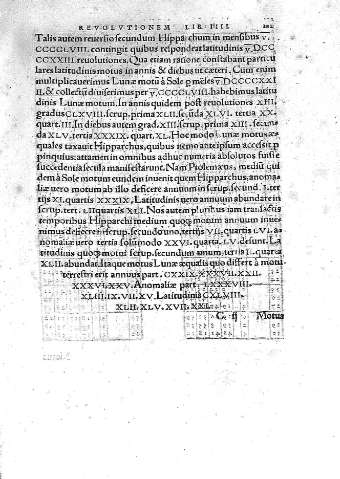 REVOLVTIONEM LIB. IIII.
Talis autem reuersio secundum Hipparchum in mensibus v.
CCCCLVIII. contingit quibus respondet latitudinis v. DCC
CCXXIII reuolutiones. Qua etiam ratione constabant particu
lares latitudinis motus in annis & diebus ut cæteri. Cum enim
multiplicauerimus Lunæ motū à Sole p menses v. DCCCCXXI
II. & collectū diuiserimus per v. CCCCLVIII. habebimus latitu
dinis Lunæ motum. In annis quidem post reuolutiones XIII.
gradus CLVIII. scrup. prima XLII. secūda XLVI. tertia XX.
quart. III. In diebus autem grad. XIII. scrup. prima XIII. secun
da XLV. tertia XXXIX. quart. XL. Hoc modo Lunæ motus æ
quales taxauit Hipparchus, quibus nemo ante ipsum accessit p
pinquius: attamen in omnibus adhuc numeris absolutos fuisse
succedentia secula manifestarunt. Nam Ptolemæus, mediū qui
dem à Sole motum eundem inuenit quem Hipparchus, anoma
liæ uero motum ab illo deficere annuum in scrup. secund. I. ter
tijs XI. quartis XXXIX, Latitudinis uero annuum abundare in
scrup. tert. LII quartis XLI. Nos autem pluribus iam transactis
temporibus Hipparchi medium quoq; motum annuum inue
nimus deficere in scrup. secundo uno, tertijs VII, quartis LVI. a
nomaliæ uero tertia solūmodo XXVI. quarta. LV. desunt. La
titudinis quoq; motui scrup. secundum unum, tertia I. quarta
XLII. abundat. Itaque motus Lunæ æqualis quo differt à motu
terrestri erit annuus part. CXXIX. XXXVII. XXII.
XXXVI. XXV. Anomaliæ part. LXXXVIII.
XLIII. IX. VII. XV. Latitudinis CXLVIII.
XLII. XLV. XVII. XXI.
Motus